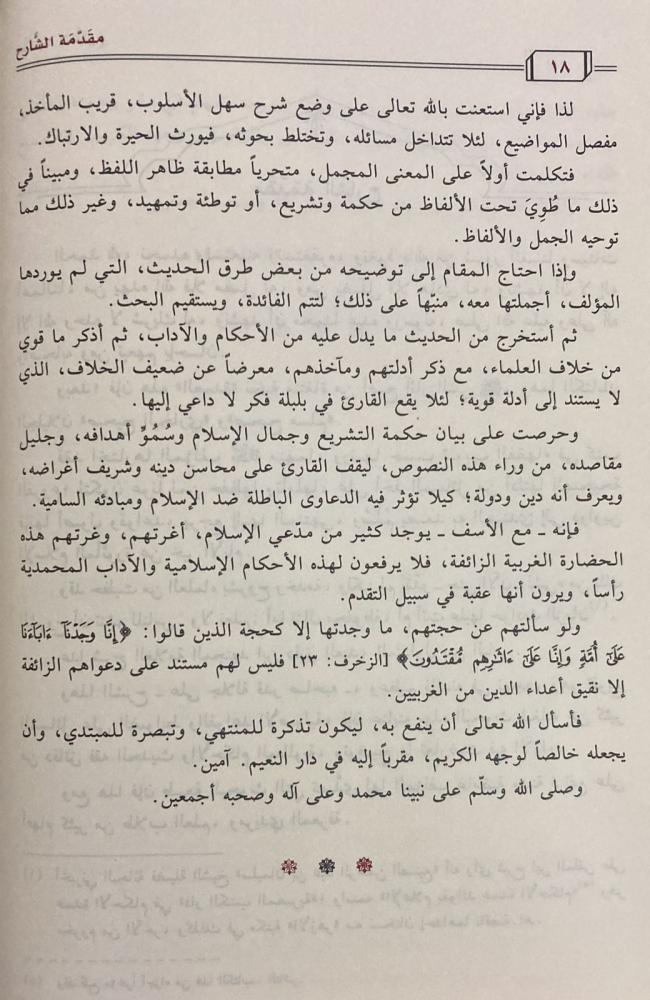 مقَدّمَة الشَّارح
١٨
لذا فإني استعنت بالله تعالى على وضع شرح سهل الأسلوب، قريب المأخذ،
مفصل المواضيع، لئلا تتداخل مسائله، وتختلط بحوثه، فيورث الحيرة والارتباك.
فتكلمت أولاً على المعنى المجمل، متحرياً مطابقة ظاهر اللفظ، ومبيناً في
ذلك ما طُوِيَ تحت الألفاظ من حكمة وتشريع، أو توطئة وتمهيد، وغير ذلك مما
توحيه الجمل والألفاظ.
وإذا احتاج المقام إلى توضيحه من بعض طرق الحديث، التي لم يوردها
المؤلف، أجملتها معه، منبّهاً على ذلك؛ لتتم الفائدة، ويستقيم البحث.
ثم أستخرج من الحديث ما يدل عليه من الأحكام والآداب، ثم أذكر ما قوي
من خلاف العلماء، مع ذكر أدلتهم ومآخذهم، معرضاً عن ضعيف الخلاف، الذي
لا يستند إلى أدلة قوية؛ لئلا يقع القارئ في بلبلة فكر لا داعي إليها.
وحرصت على بيان حكمة التشريع وجمال الإسلام وسُمُوِّ أهدافه، وجليل
مقاصده، من وراء هذه النصوص، ليقف القارئ على محاسن دينه وشريف أغراضه،
ويعرف أنه دين ودولة؛ كيلا تؤثر فيه الدعاوى الباطلة ضد الإسلام ومبادئه السامية.
فإنه ـ مع الأسف ـ يوجد كثير من مدّعي الإسلام، أغرتهم، وغرتهم هذه
الحضارة الغربية الزائفة، فلا يرفعون لهذه الأحكام الإسلامية والآداب المحمدية
رأساً، ويرون أنها عقبة في سبيل التقدم.
ولو سألتهم عن حجتهم، ما وجدتها إلا كحجة الذين قالوا: ﴿إِنَّا وَجَدْنَآ ءَابَآءَنَا
عَلَىٰٓ أُمَّةٍ وَإِنَّا عَلَىٰٓ ءَاثَـٰرِهِم مُّقْتَدُونَ﴾ [الزخرف: ٢٣] فليس لهم مستند على دعواهم الزائفة
إلا نقيق أعداء الدين من الغربيين.
فأسأل الله تعالى أن ينفع به، ليكون تذكرة للمنتهي، وتبصرة للمبتدي، وأن
يجعله خالصاً لوجهه الكريم، مقرباً إليه في دار النعيم. آمين.
وصلى الله وسلّم على نبينا محمد وعلى آله وصحبه أجمعين.